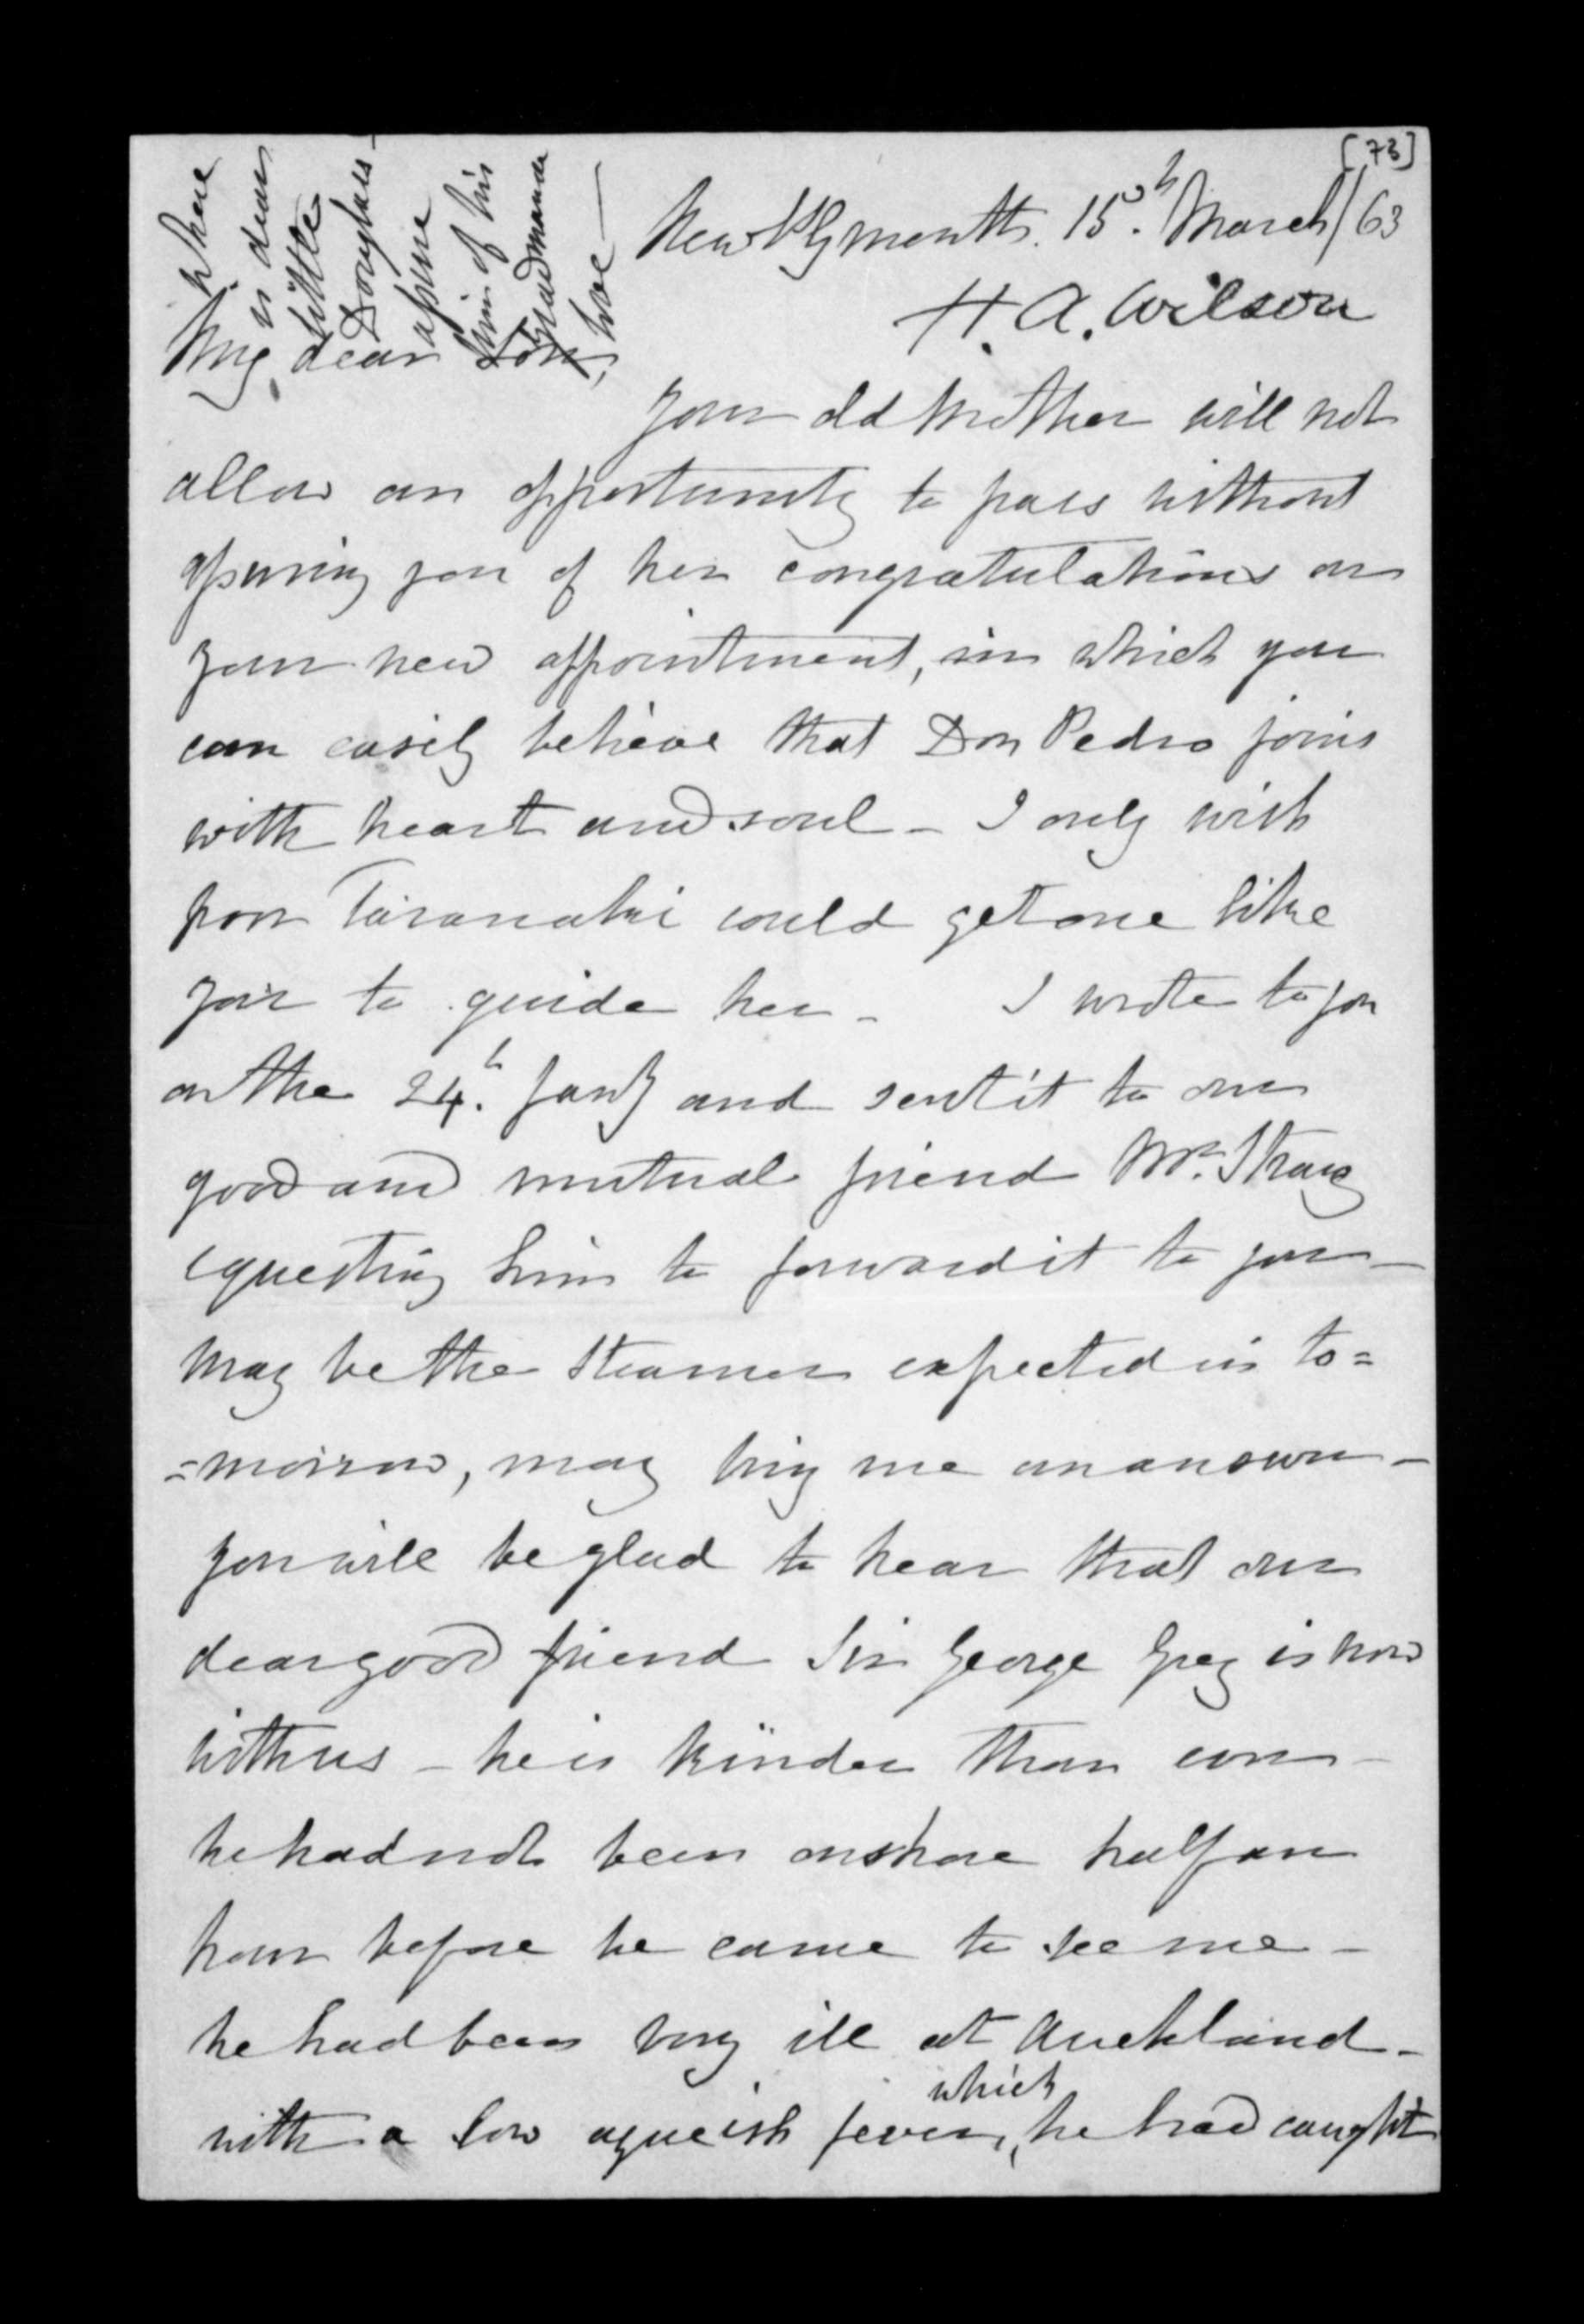 [73]
New Plymouth. 15th March/63
H. A. Wilson
where
is dear
little
Douglas -
assure
him of his
Grandmama
love —
My dear Son,
Your old Mother will not
allow an opportunity to pass without
assuring you of her congratulations on
your new appointment, in which you
can easily believe that Don Pedro joins
with heart and soul - I only wish
poor Taranaki could get one like
you to guide her - I wrote to you
on the 24th Jany and sent it to our
good and mutual friend Mr. Strang
requesting him to forward it to you -
May be the Steamer expected in to=
=morrow, may bring me an answer -
you will be glad to hear that our
dear good friend Sir George Grey is now
with us - he is kinder than ever -
he had not been on shore half an
hour before he came to see me -
he had been very ill at Auckland -
with a low agueish fever, which he had caught